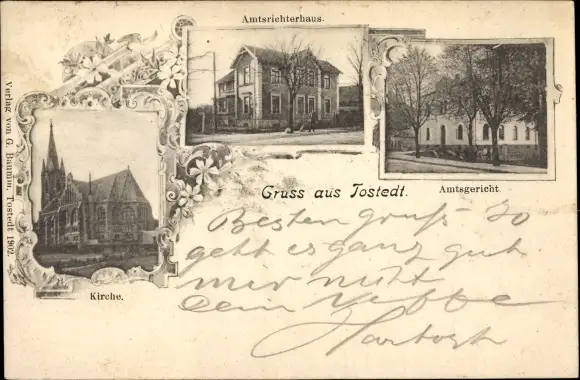 Amtsrichterhaus.
Verlag von G. Baumm, Tostedt 1902.
Gruss aus Tostedt.
Amtsgericht.
Kirche.
Besten gruß So
geht es ganz gut
mir nicht
Dein Neffe